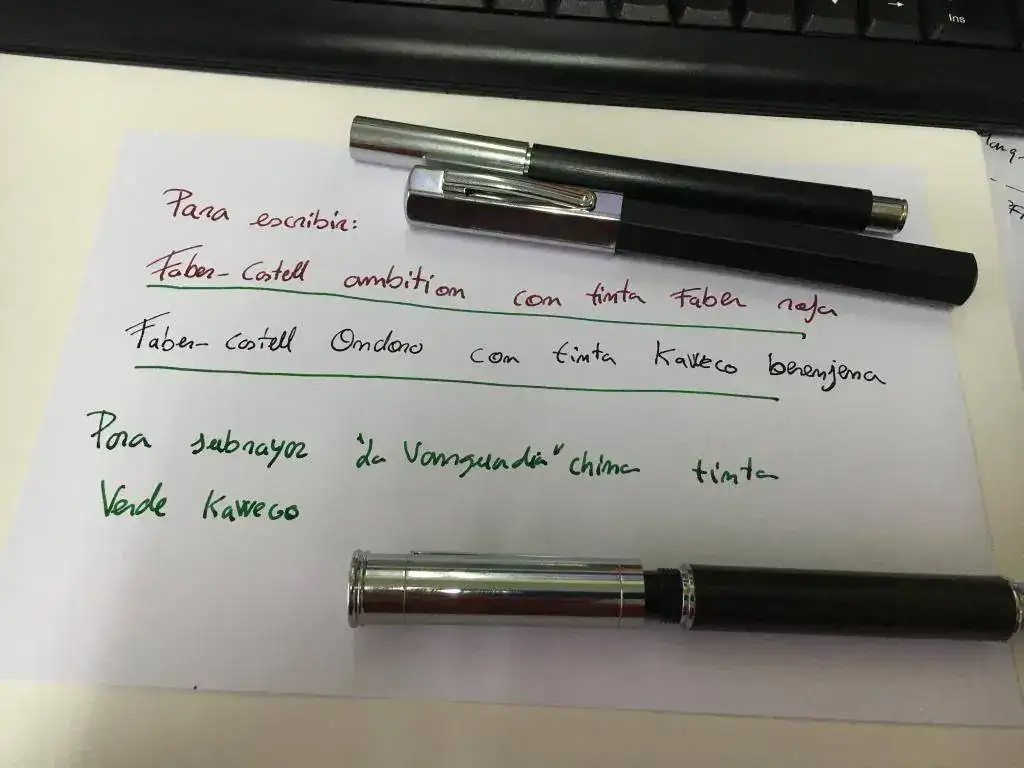 Ins
Para escribir:
Faber-Castell ambition con tinta Faber roja
Faber-Castell Ondoro con tinta Kaweco berenjena
Para subrayar "La Vanguardia" china tinta
Verde Kaweco